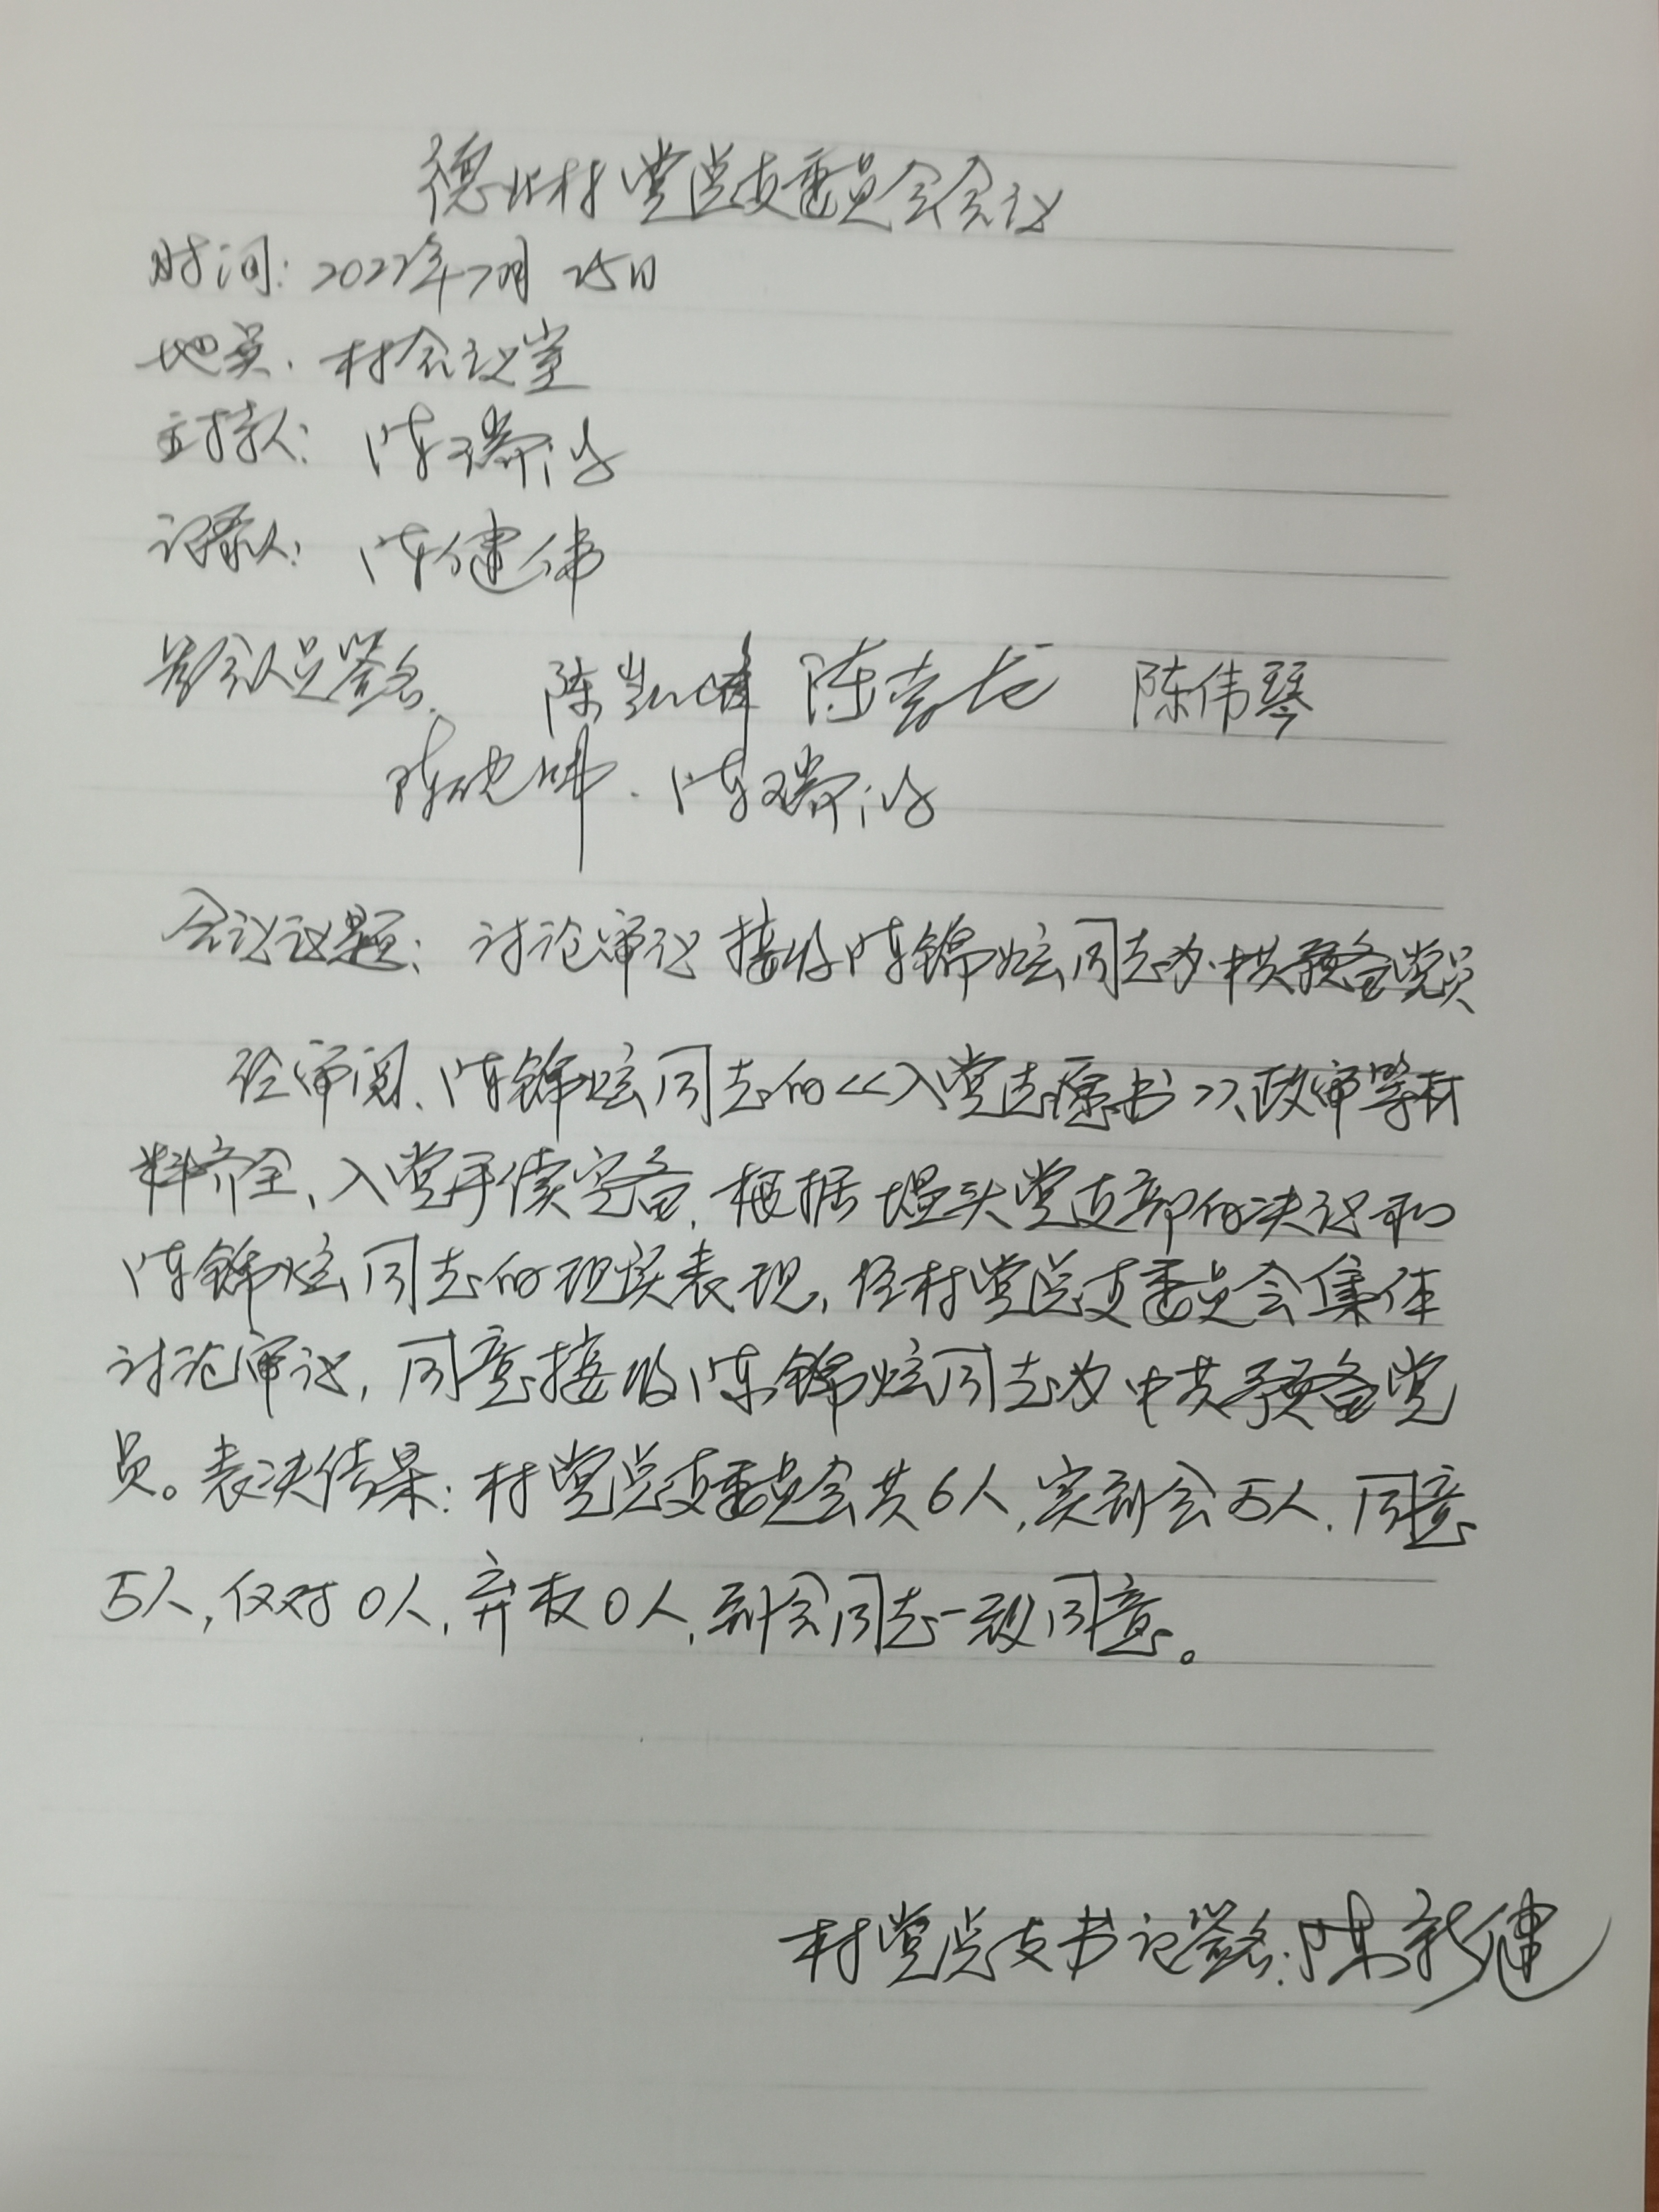 德北村党总支委员会会议
时间：2022年7月25日
地点：村会议室
主持人：陈瑞治
记录人：陈健伟
参会人员签名：陈凯峰 陈 陈伟琴
陈 . 陈瑞治
会议议题：讨论审议接收陈锦炫同志为中共预备党员
经审阅、陈锦炫同志的<<入党志愿书>>、政审等材
料齐全、入党手续完备，根据埕头党支部的决议和
陈锦炫同志的现实表现，经村党总支委员会集体
讨论审议，同意接收陈锦炫同志为中共预备党
员。表决结果：村党总支委员会共6人，实到会5人，同意
5人，反对0人，弃权0人，到会同志一致同意。
村党总支书记签名：陈新健